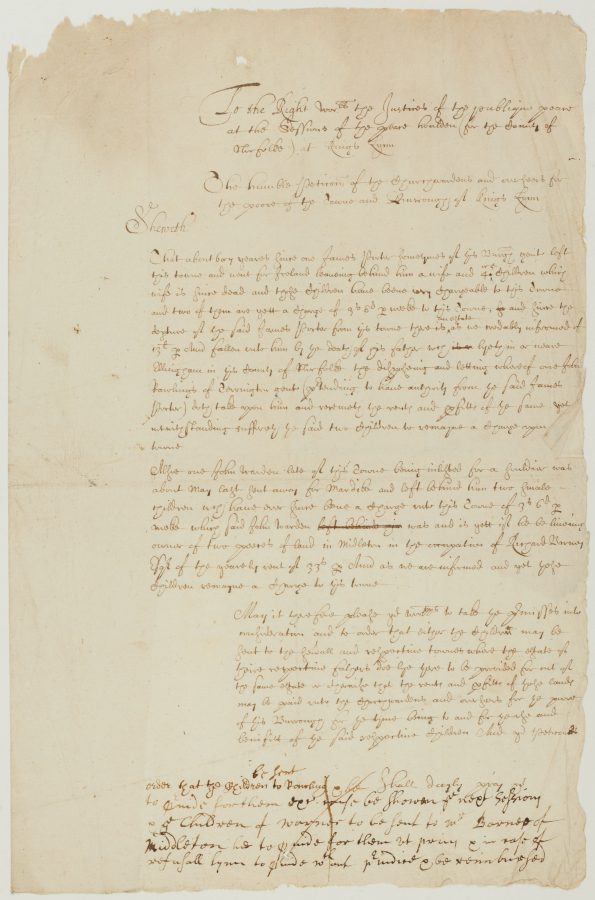 To the Right wor:ll the Justices of the publique peace
at the Sessions of the peace houlden (for the County of
Norfolke) at Kings Lynn
The humble Peticon of the Churchwardens and overseers for
the poore of the Towne and Burrough of Kings Lynn
Sheweth
That about yeares since one James Porter sometimes of this Burgh gent left
this towne and went for Ireland leaveing behind him a wife and Children which
wife is since dead and those Children have beene very Chargeable to this Towne
and two of them are yett a Charge of p weeke to this Towne, and since the
depture of the said James Porter from this towne there is an estate as we credably informed of
p Ann fallen unto him by the death of his father lyeth in or neare
Ellingham in this County of Norfolke the disposeing and letting whereof one John
Rawlings of Terrington gent (ptending to have authority from the said James
Porter) doth take upon him and receiveth the rents and pfitts of the same yet
notwithstanding suffereth the said two Children to remayne a Charge upon
towne
Alsoe one John Warden late of this Towne being inlisted for a souldier was
about May last sent away for Mardike and left behind him two smale
Children wch have ever since bene a Charge unto this Towne of 3s 6d p
weeke which said John Warden left behind him was and is yett is the liveing
owner of two peeces of land in Midleton in the occupation of Richard Barney
Esqr of the yearely rent of 33s p Ann as we are informed and yet those
Children remayne a Charge to this towne
May it therefore please yor worpps to take the pmisses into
consideration and to order that either the Children may be
sent to the severall and respective townes where the estate of
theire respective fathers doe lye there to be provided for out of
the same estate or otherwise that the rents and pfitts of those lands
may be paid unto the Churchwardens and overseers for the poore
of this Burrough for the tyme being to and for the use and
benifitt of the said respective Children And yor Peticoners
shall duely pray &c
be sent
order that the Children to Rawlins
to pvide for them except cause be shewen ye next Sessions
& ye Children of Warden to be sent to Mr Barney of
Middleton he to pvide for them ut prius & in case of
refusall Lynn to pvide wthout pjudice & be reimbursed